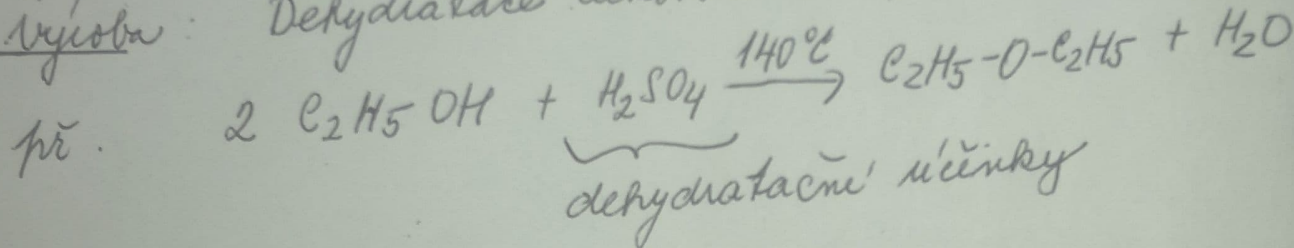 Výroba : Dehydratace
př. 2 C2H5OH + H2SO4 140°C → C2H5-O-C2H5 + H2O
dehydratační účinky